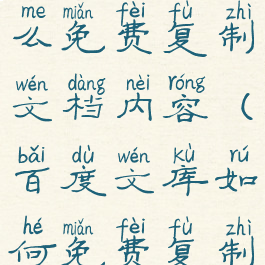 me miǎn fèi fù zhì
么免费复制
wén dàng nèi róng
文档内容（
bǎi dù wén kù rú
百度文库如
hé miǎn fèi fù zhì
何免费复制